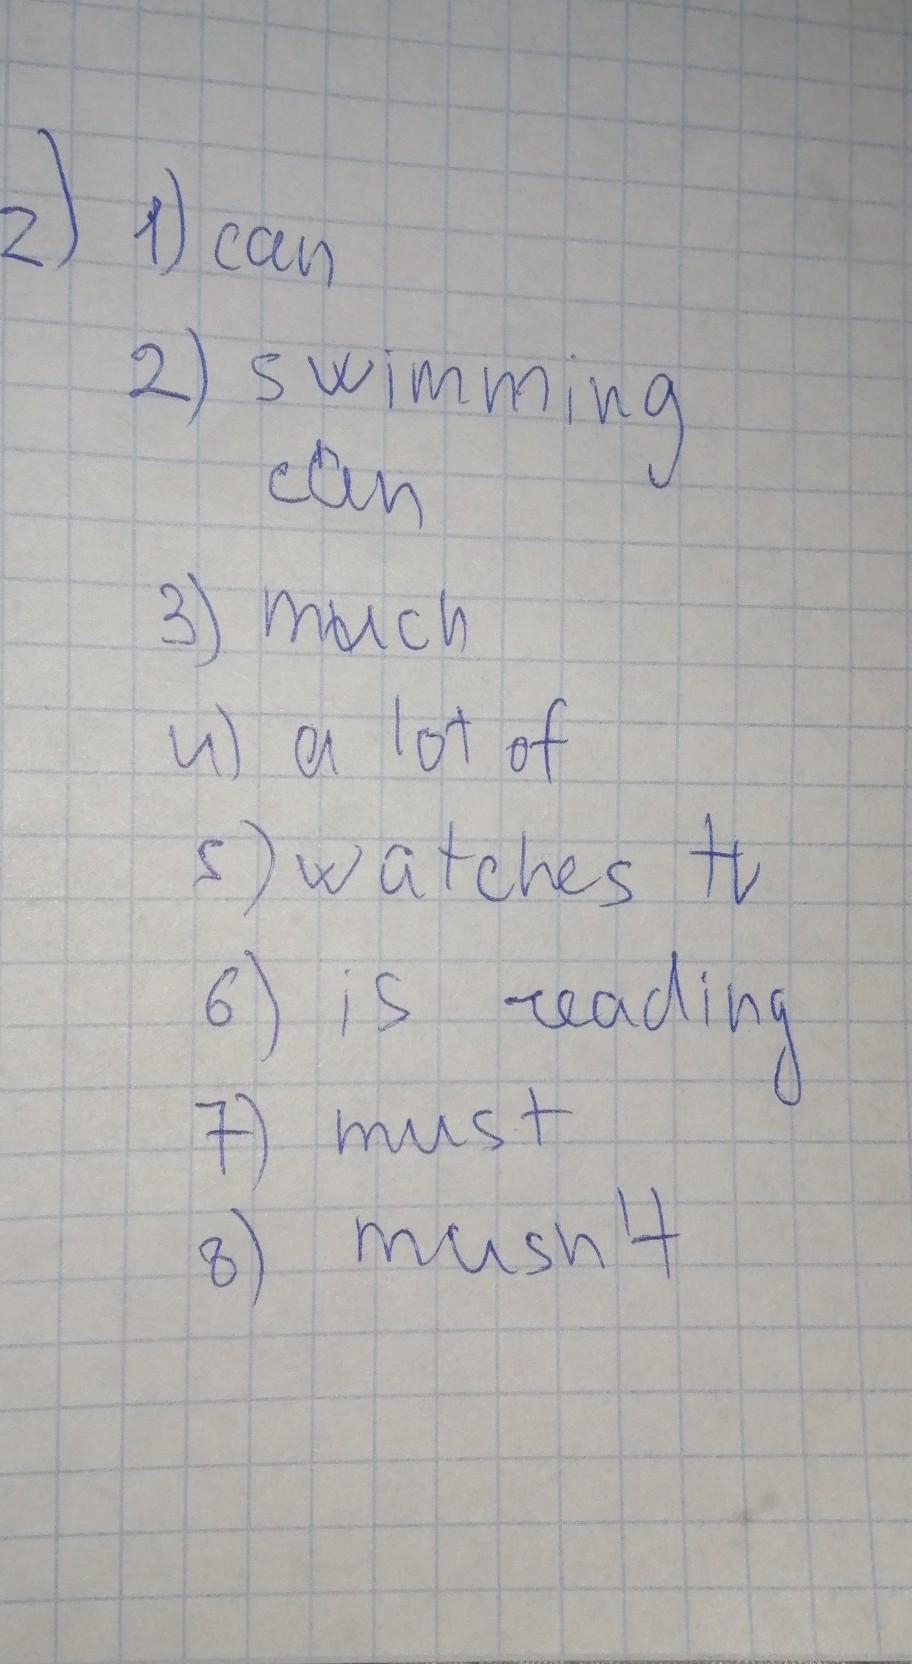 2) 1) can
2) swimming
can
3) much
4) a lot of
5) watches tv
6) is reading
7) must
8) musn't